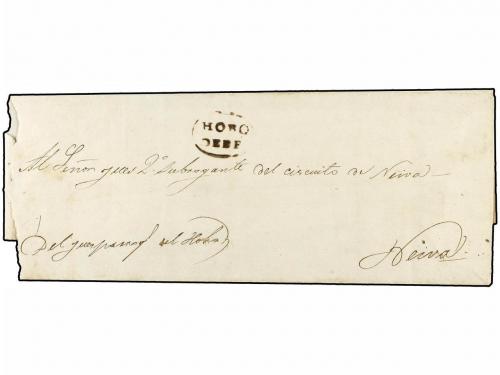 HOBO
DEBE
Al Señor juez 2º Subrogante del circuito de Neiva
Del juez parroql del Hobo
Neiva